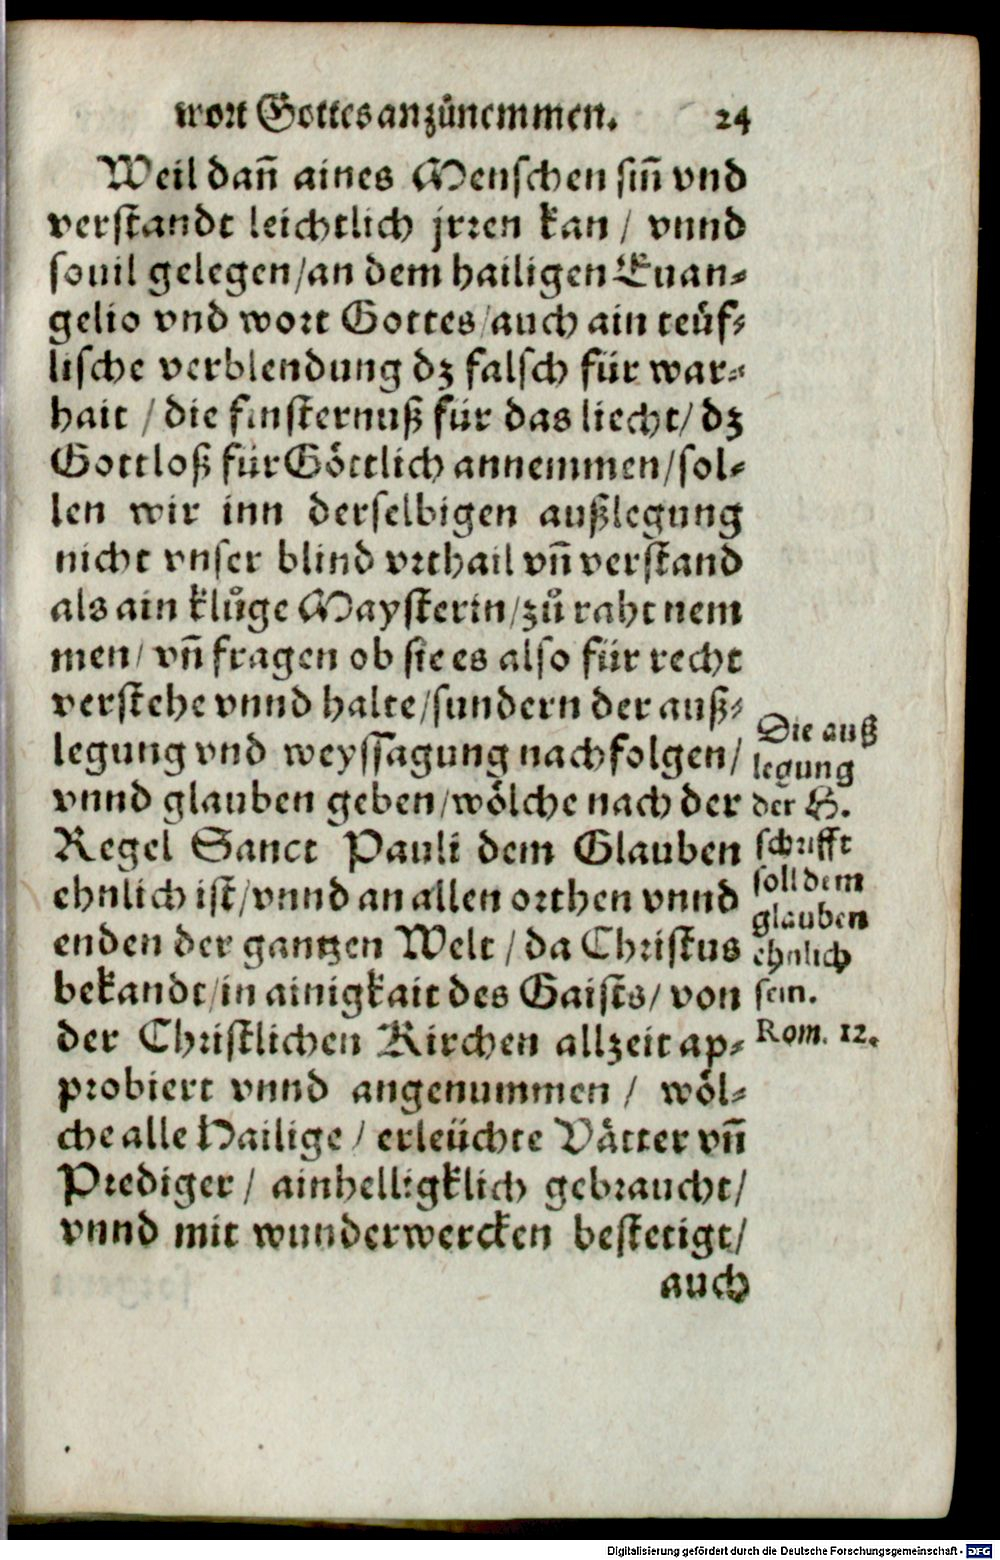 wort Gottes anzůnemmen. 24
Weil dañ aines Menschen siñ vnd
verstandt leichtlich jrren kan / vnnd
souil gelegen / an dem hailigen Euan-
gelio vnd wort Gottes / auch ain teüf-
lische verblendung dz falsch für war-
hait / die finsternuß für das liecht / dz
Gottloß für Göttlich annemmen / sol-
len wir inn derselbigen außlegung
nicht vnser blind vrthail vñ verstand
als ain klůge Maysterin / zů raht nem
men / vñ fragen ob sie es also für recht
verstehe vnnd halte / sundern der auß-
legung vnd weyssagung nachfolgen /
vnnd glauben geben / wölche nach der
Regel Sanct Pauli dem Glauben
ehnlich ist / vnnd an allen orthen vnnd
enden der gantzen Welt / da Christus
bekandt / in ainigkait des Gaists / von
der Christlichen Kirchen allzeit ap-
probiert vnnd angenummen / wöl-
che alle Hailige / erleüchte Vätter vñ
Prediger / ainhelligklich gebraucht /
vnnd mit wunderwercken bestetigt /
auch
Die auß
legung
der H.
schrifft
soll dem
glauben
ehnlich
sein.
Rom. 12.
Digitalisierung gefördert durch die Deutsche Forschungsgemeinschaft - DFG